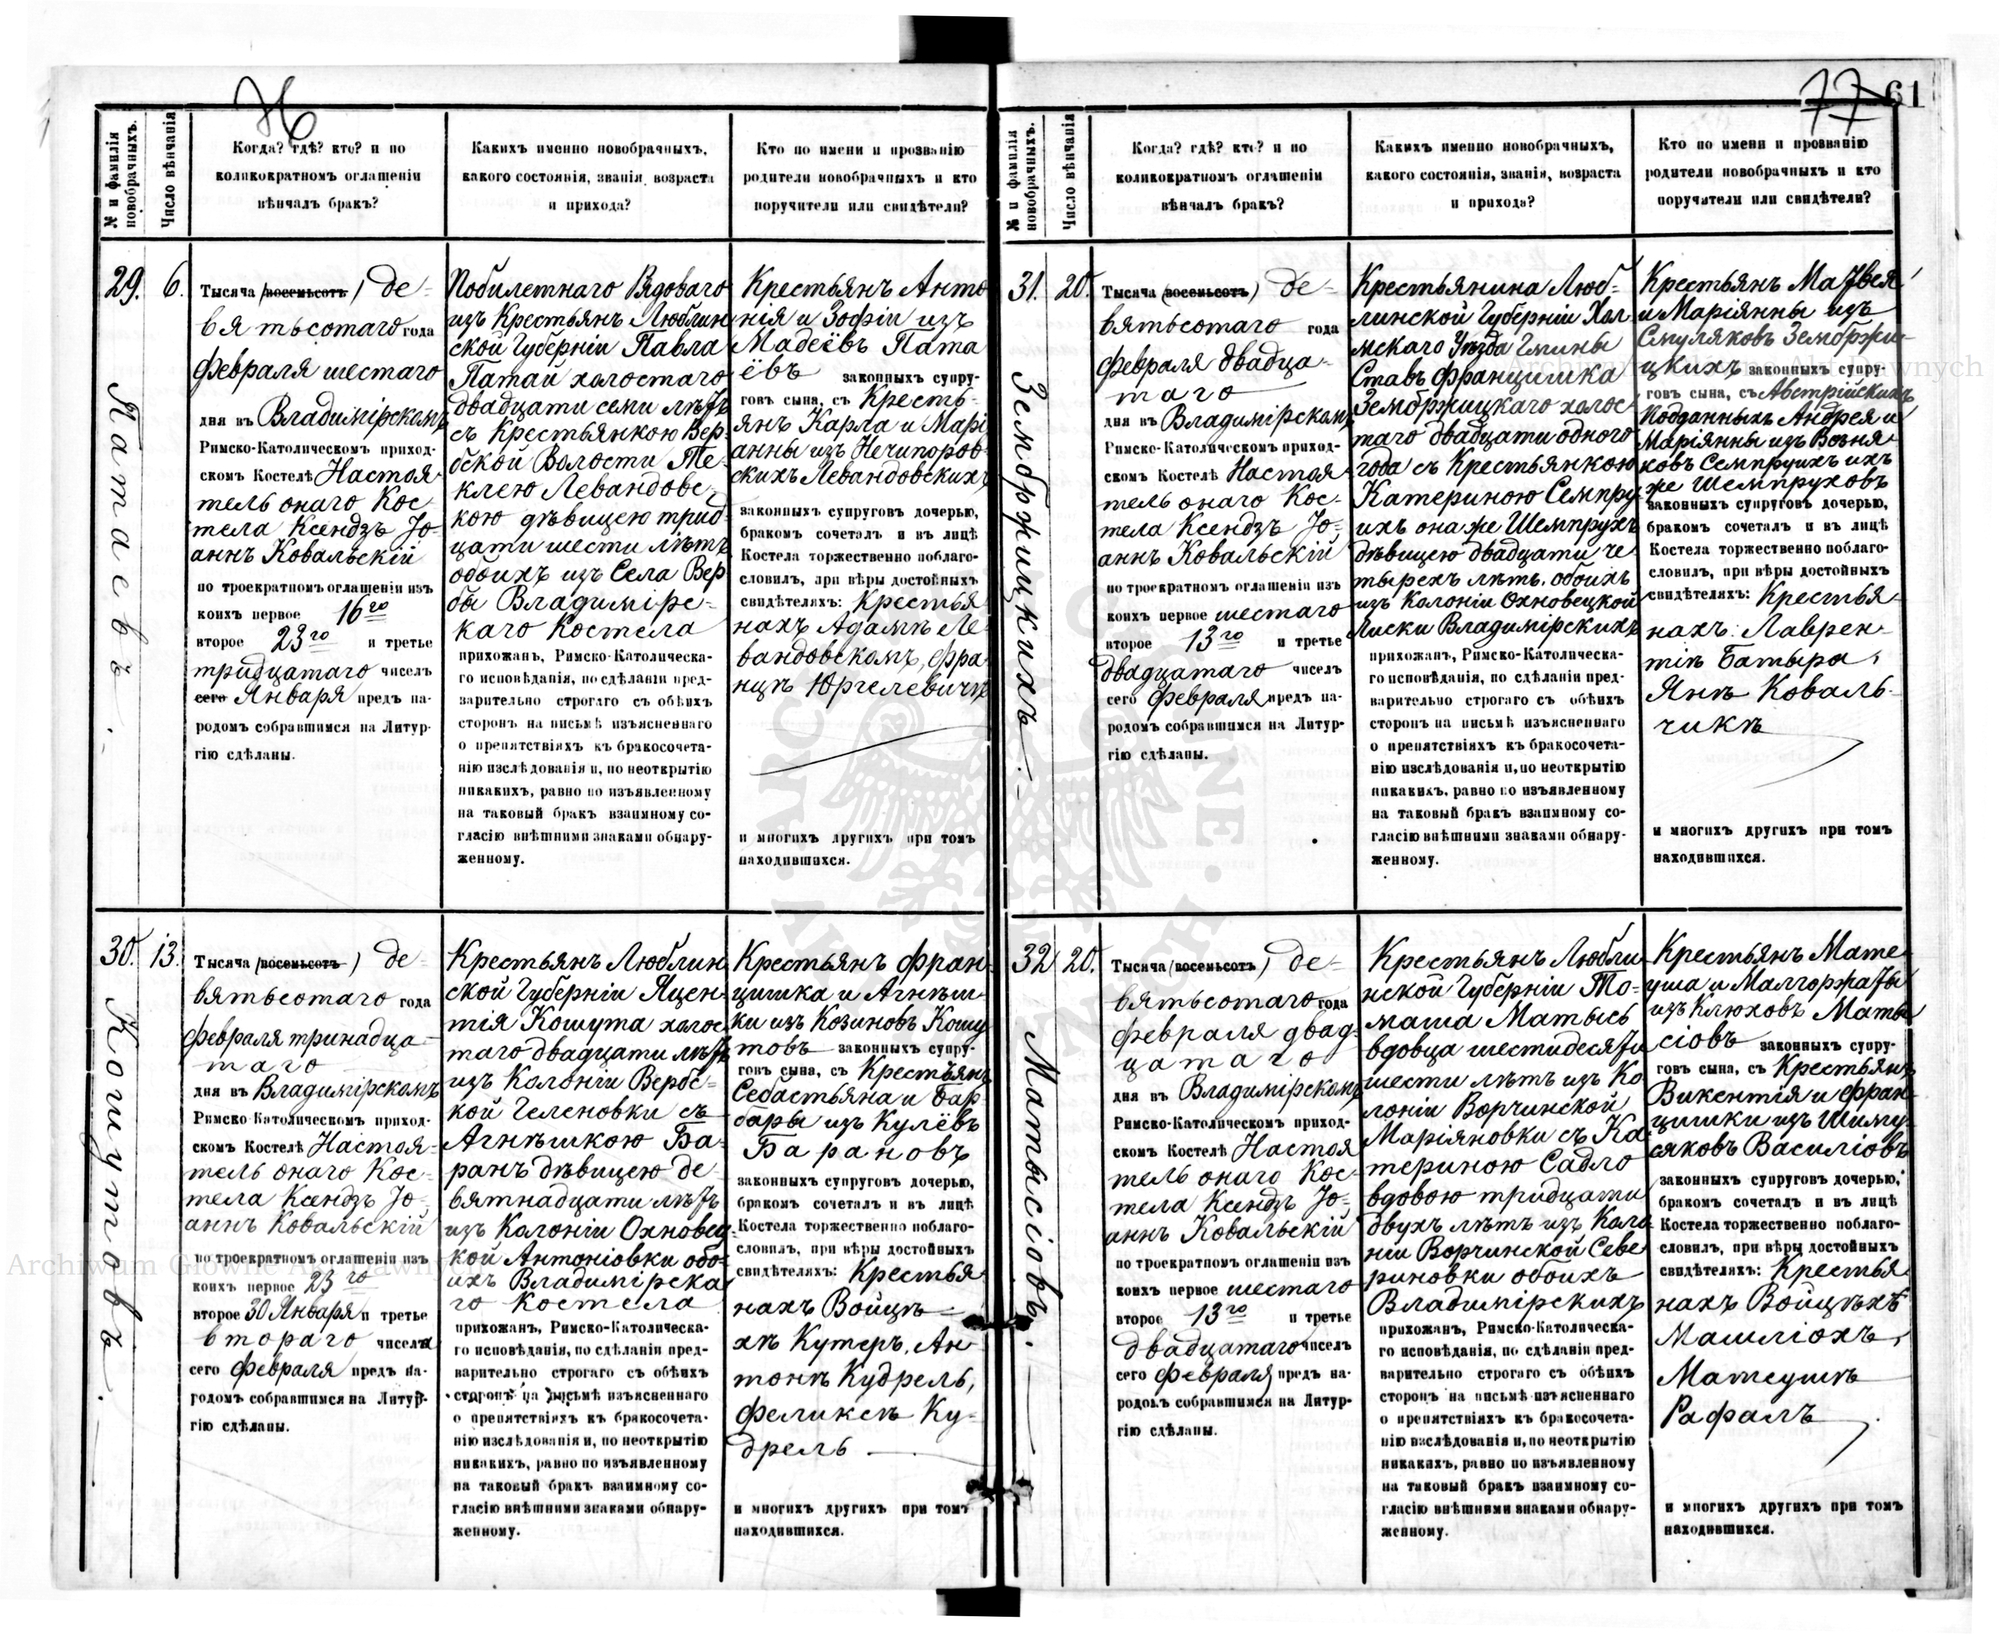 76
77 61
№ и фамилія новобрачныхъ.
Число вѣнчанія
Когда? гдѣ? кто? и по
коликократномъ оглашеніи
вѣнчалъ бракъ?
Какихъ именно новобрачныхъ,
какого состоянія, званія, возраста
и прихода?
Кто по имени и прозванію
родители новобрачныхъ и кто
поручители или свидѣтели?
29. 6.
Патаевъ.
Тысяча (восемьсотъ) де-
вятьсотаго года
февраля шестаго
дня въ Владимірскомъ
Римско-Католическомъ приход-
скомъ Костелѣ Настоя-
тель онаго Кос-
тела Ксендзъ Іо-
аннъ Ковальскій
по троекратномъ оглашеніи изъ
коихъ первое 16го
второе 23го и третье
тридцатаго чиселъ
сего Января предъ на-
родомъ собравшимся на Литур-
гію сдѣланы.
Побилетнаго Рядоваго
изъ Крестьянъ Люблин
ской Губерніи Павла
Патай холостаго
двадцати семи лѣтъ
съ Крестьянкою Вер-
бской Волости Те-
клею Левандовс-
кою дѣвицею трид-
цати шести лѣтъ
обоихъ изъ Села Вер
бы Владимірс-
каго Костела
прихожанъ, Римско-Католическа-
го исповѣданія, по сдѣланіи пред-
варительно строгаго съ обѣихъ
сторонъ на письмѣ изъясненнаго
о препятствіяхъ къ бракосочета-
нію изслѣдованія и, по неоткрытію
никакихъ, равно по изъявленному
на таковый бракъ взаимному со-
гласію внѣшними знаками обнару-
женному.
Крестьянъ Анто
нія и Зофіи изъ
Мадеёвъ Пата
ёвъ законныхъ супру-
говъ сына, съ Кресть-
янъ Карла и Марі
анны изъ Нечипоров-
скихъ Левандовскихъ
законныхъ супруговъ дочерью,
бракомъ сочеталъ и въ лицѣ
Костела торжественно поблаго-
словилъ, при вѣры достойныхъ
свидѣтеляхъ: Крестья
нахъ Адамѣ Ле-
вандовскомъ, Фра-
нцѣ Юргелевичѣ
и многихъ другихъ при томъ
находившихся.
30. 13.
Кошутовъ.
Тысяча (восемьсотъ) де-
вятьсотаго года
февраля тринадца-
таго
дня въ Владимірскомъ
Римско-Католическомъ приход-
скомъ Костелѣ Настоя-
тель онаго Кос-
тела Ксендзъ Іо-
аннъ Ковальскій
по троекратномъ оглашеніи изъ
коихъ первое 23го
второе 30 Января и третье
втораго чиселъ
сего февраля предъ на-
родомъ собравшимся на Литур-
гію сдѣланы.
Крестьянъ Люблин
ской Губерніи Яцен-
тія Кошута холос
таго двадцати лѣтъ
изъ Колоніи Вербс-
кой Геленовки съ
Агнѣшкою Ба-
ранъ дѣвицею де-
вятнадцати лѣтъ
изъ Колоніи Охновец
кой Антоніовки обо-
ихъ Владимірска
го Костела
прихожанъ, Римско-Католическа-
го исповѣданія, по сдѣланіи пред-
варительно строгаго съ обѣихъ
сторонъ на письмѣ изъясненнаго
о препятствіяхъ къ бракосочета-
нію изслѣдованія и, по неоткрытію
никакихъ, равно по изъявленному
на таковый бракъ взаимному со-
гласію внѣшними знаками обнару-
женному.
Крестьянъ Фран-
цишка и Агнѣш-
ки изъ Козиновъ Кошу
товъ законныхъ супру-
говъ сына, съ Крестьянъ
Себастьяна и Бар-
бары изъ Кулёвъ
Барановъ
законныхъ супруговъ дочерью,
бракомъ сочеталъ и въ лицѣ
Костела торжественно поблаго-
словилъ, при вѣры достойныхъ
свидѣтеляхъ: Крестья
нахъ Войцѣ-
хѣ Кутеръ, Ан
тонѣ Кудрель,
Феликсѣ Ку-
дрель
и многихъ другихъ при томъ
находившихся.
№ и фамилія новобрачныхъ.
Число вѣнчанія
Когда? гдѣ? кто? и по
коликократномъ оглашеніи
вѣнчалъ бракъ?
Какихъ именно новобрачныхъ,
какого состоянія, званія, возраста
и прихода?
Кто по имени и прозванію
родители новобрачныхъ и кто
поручители или свидѣтели?
31. 20.
Зембржицкихъ.
Тысяча (восемьсотъ) де-
вятьсотаго года
февраля двадца-
таго
дня въ Владимірскомъ
Римско-Католическомъ приход-
скомъ Костелѣ Настоя-
тель онаго Кос-
тела Ксендзъ Іо-
аннъ Ковальскій
по троекратномъ оглашеніи изъ
коихъ первое шестаго
второе 13го и третье
двадцатаго чиселъ
сего февраля предъ на-
родомъ собравшимся на Литур-
гію сдѣланы.
Крестьянина Люб-
линской Губерніи Хол
мскаго Уѣзда Гмины
Ставъ Францишка
Зембржицкаго холос-
таго двадцати одного
года съ Крестьянкою
Катериною Семпру
ихъ она же Шемпрухъ
дѣвицею двадцати че
тырехъ лѣтъ, обоихъ
изъ Колоніи Охновецкой
Лиски Владимірскихъ
прихожанъ, Римско-Католическа-
го исповѣданія, по сдѣланіи пред-
варительно строгаго съ обѣихъ
сторонъ на письмѣ изъясненнаго
о препятствіяхъ къ бракосочета-
нію изслѣдованія и, по неоткрытію
никакихъ, равно по изъявленному
на таковый бракъ взаимному со-
гласію внѣшними знаками обнару-
женному.
Крестьянъ Матвея
и Маріянны изъ
Смуляковъ Зембржи-
цкихъ законныхъ супру-
говъ сына, съ Австрійскихъ
Подданныхъ Андрея и
Маріянны изъ Возня-
ковъ Семпруихъ ихъ
же Шемпруховъ
законныхъ супруговъ дочерью,
бракомъ сочеталъ и въ лицѣ
Костела торжественно поблаго-
словилъ, при вѣры достойныхъ
свидѣтеляхъ: Крестья-
нахъ: Лаврен-
тіѣ Батыра,
Янѣ Коваль-
чикѣ
и многихъ другихъ при томъ
находившихся.
32 20.
Матысіовъ.
Тысяча (восемьсотъ) де-
вятьсотаго года
февраля двад-
цатаго
дня въ Владимірскомъ
Римско-Католическомъ приход-
скомъ Костелѣ Настоя
тель онаго Кос-
тела Ксендзъ Іо-
аннъ Ковальскій
по троекратномъ оглашеніи изъ
коихъ первое шестаго
второе 13го и третье
двадцатаго чиселъ
сего февраля предъ на-
родомъ собравшимся на Литур-
гію сдѣланы.
Крестьянъ Любли-
нской Губерніи То-
маша Матысь
вдовца шестидесяти
шести лѣтъ изъ Ко
лоніи Ворчинской
Маріяновки съ Ка-
териною Садло
вдовою тридцати
двухъ лѣтъ изъ Коло
ніи Ворчинской Севе
риновки обоихъ
Владимірскихъ
прихожанъ, Римско-Католическа-
го исповѣданія, по сдѣланіи пред-
варительно строгаго съ обѣихъ
сторонъ на письмѣ изъясненнаго
о препятствіяхъ къ бракосочета-
нію изслѣдованія и, по неоткрытію
никакихъ, равно по изъявленному
на таковый бракъ взаимному со-
гласію внѣшними знаками обнару-
женному.
Крестьянъ Мате-
уша и Малгоржаты
изъ Клюховъ Маты
сіовъ законныхъ супру-
говъ сына, съ Крестьянъ
Викентія и Фран-
цишки изъ Шиму-
сяковъ Василіовъ
законныхъ супруговъ дочерью,
бракомъ сочеталъ и въ лицѣ
Костела торжественно поблаго-
словилъ, при вѣры достойныхъ
свидѣтеляхъ: Крестья
нахъ Войцѣхѣ
Машліохъ,
Матеушѣ
Рафалъ
и многихъ другихъ при томъ
находившихся.
Archiwum Główne Akt Dawnych
Archiwum Główne Akt Dawnych